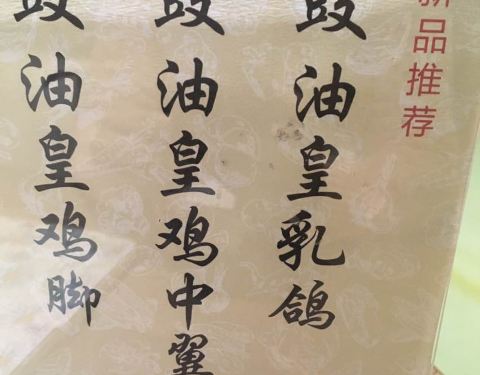 新品推荐
豉油皇乳鸽
豉油皇鸡中翼
豉油皇鸡脚